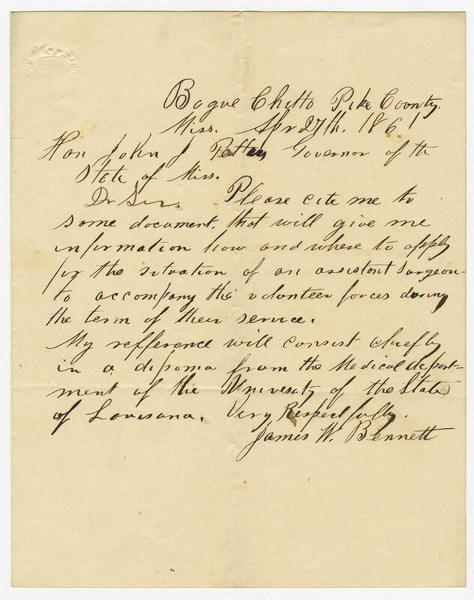 Bogue Chitto Pike County.
Miss. Apr 27th. 1861
Hon John J Pettus Governor of the
State of Miss.
Dr Sir. Please cite me to
some document, that will give me
information how and where to apply
for the situation of an assistant surgeon
to accompany the volunteer forces during
the term of their service.
My refference will consist chiefly
in a diploma from the Medical depart-
ment of the University of the State
of Louisiana. Very Respectfully.
James W. Bennett